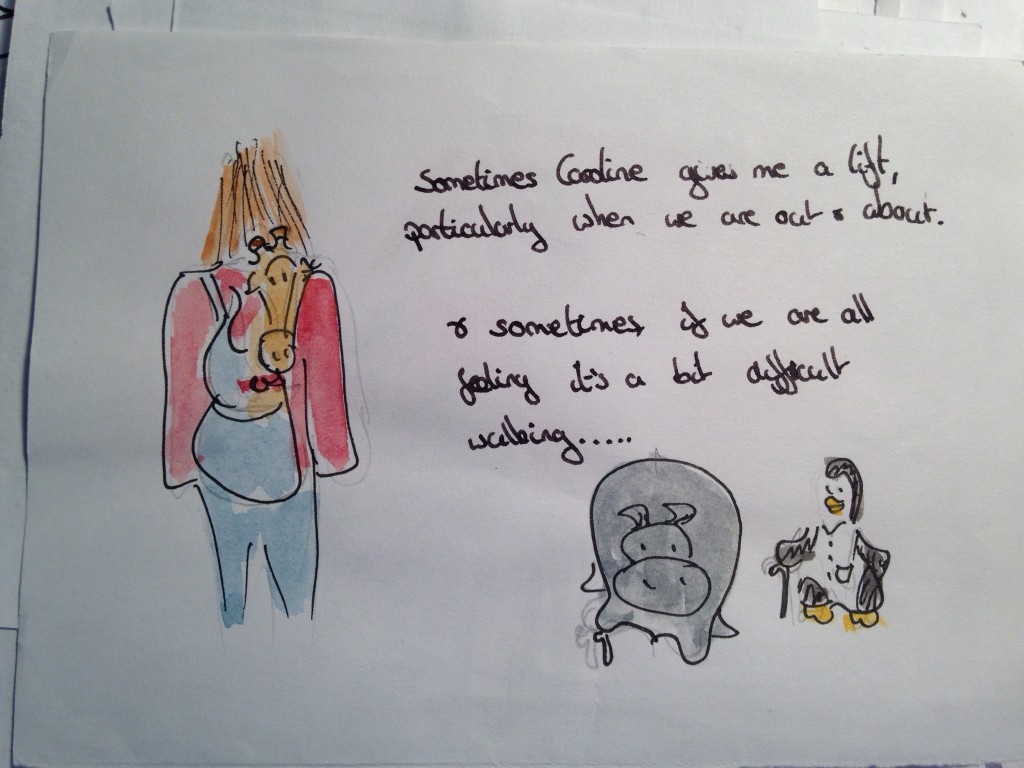 Sometimes Caroline gives me a lift,
particularly when we are out & about.
& sometimes, if we are all
feeling it's a bit difficult
walking.....